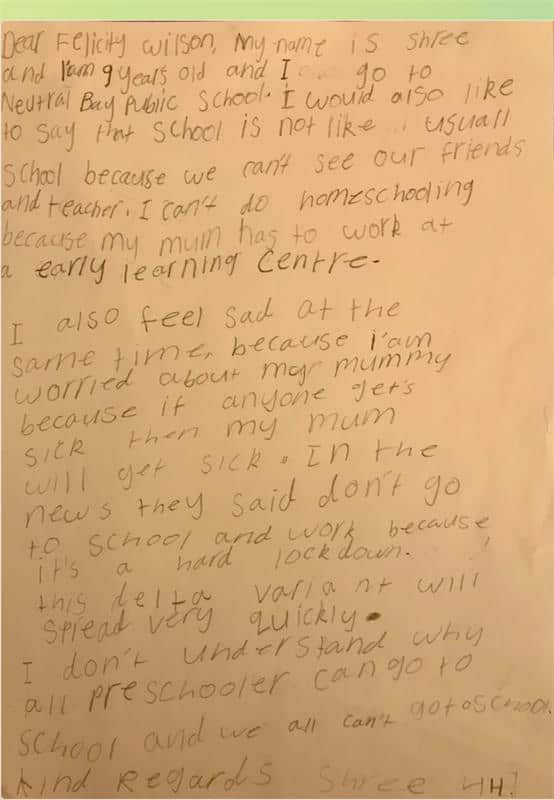 Dear Felicity Wilson, My name is Shree
and I'am 9 years old and I go to
Neutral Bay Public School. I would also like
to say that school is not like usuall
school because we can't see our friends
and teacher. I can't do homeschooling
because my mum has to work at
a early learning Centre.
I also feel sad at the
same time, because i'am
worried about my mummy
because if anyone get's
sick then my mum
will get sick. In the
news they said don't go
to school and work because
it's a hard lockdown.
this delta variant will
spread very quickly.
I don't understand why
all preschooler can go to
school and we all can't go to school.
kind Regards Shree 4H